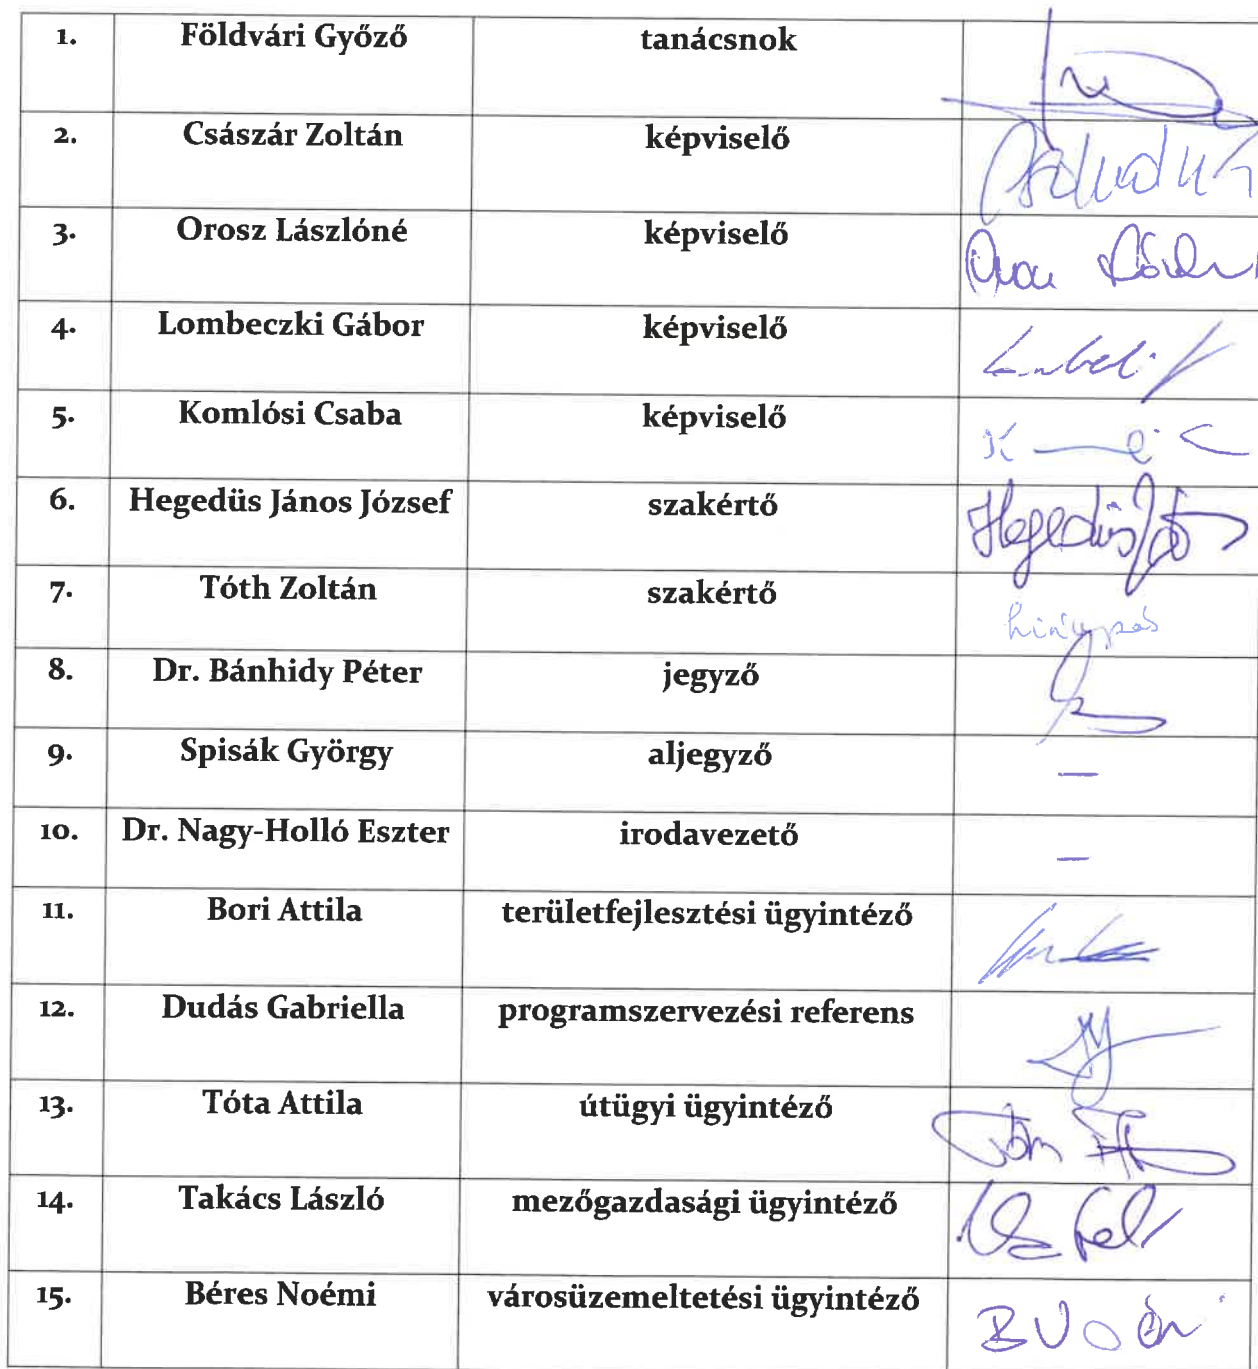 1. Földvári Győző tanácsnok
2. Császár Zoltán képviselő
3. Orosz Lászlóné képviselő
4. Lombeczki Gábor képviselő
5. Komlósi Csaba képviselő
6. Hegedüs János József szakértő Hegedüs
7. Tóth Zoltán szakértő
8. Dr. Bánhidy Péter jegyző
9. Spisák György aljegyző –
10. Dr. Nagy-Holló Eszter irodavezető –
11. Bori Attila területfejlesztési ügyintéző
12. Dudás Gabriella programszervezési referens
13. Tóta Attila útügyi ügyintéző
14. Takács László mezőgazdasági ügyintéző
15. Béres Noémi városüzemeltetési ügyintéző